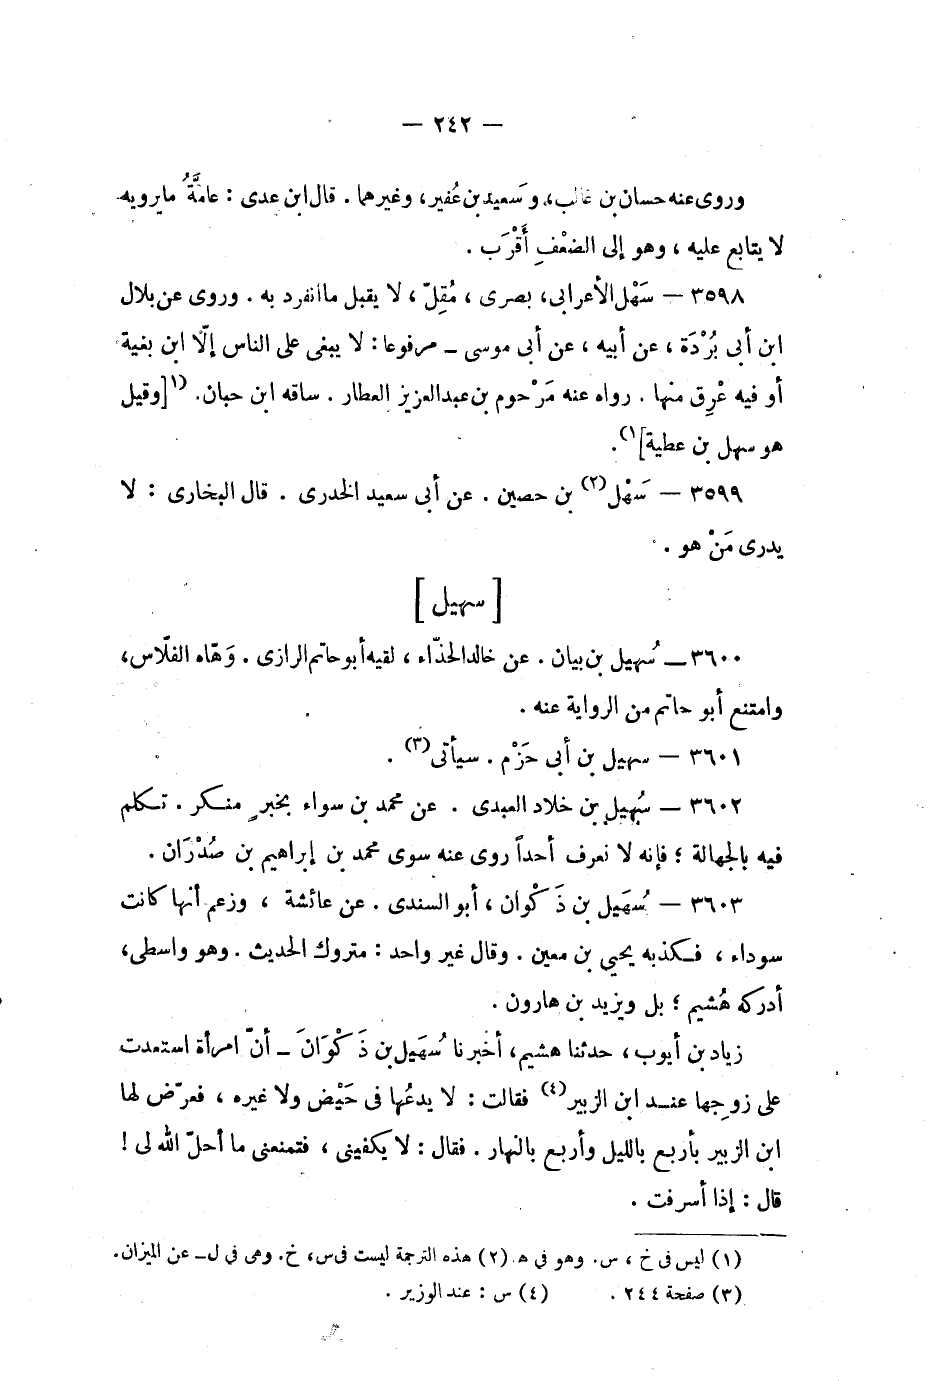 — ٢٤٢ —
وروى عنه حسان بن غالب، وسَعيد بن عُفير، وغيرهما . قال ابن عدى : عامَّةُ ما يرويه
لا يتابع عليه ، وهو إلى الضعْفِ أَقْرَب .
٣٥٩٨ — سَهْل الأعرابى، بصرى ، مُقِلّ ، لا يقبل ما انفرد به . وروى عن بلال
ابن أبى بُرْدَة ، عن أبيه ، عن أبى موسى ــ مرفوعا : لا يبغى على الناس إلّا ابن بغية
أو فيه عْرِق منها . رواه عنه مَرْحوم بن عبدالعزيز العطار . ساقه ابن حبان. (١[وقيل
هو سهل بن عطية]١).
٣٥٩٩ — سَهْل(٢) بن حصين . عن أبى سعيد الخدرى . قال البخارى : لا
يدرى مَنْ هو .
[ سهيل ]
٣٦٠٠ ــ سُهيل بن بيان . عن خالد الحذّاء ، لقيه أبو حاتم الرازى . وَهّاه الفلّاس،
وامتنع أبو حاتم من الرواية عنه .
٣٦٠١ — سهيل بن أبى حَزْم . سيأتى(٣) .
٣٦٠٢ — سُهيل بن خلاد العبدى . عن محمد بن سواء بخبرٍ منكر . تكلم
فيه بالجهالة ؛ فإنه لا نعرف أحداً روى عنه سوى محمد بن إبراهيم بن صُدْرَان .
٣٦٠٣ — سُهَيل بن ذَكْوان ، أبو السندى . عن عائشة ، وزعم أنها كانت
سوداء ، فكذبه يحيى بن معين . وقال غير واحد : متروك الحديث . وهو واسطى،
أدركه هُشيم ؛ بل ويزيد بن هارون .
زياد بن أيوب ، حدثنا هشيم، أخبرنا سُهَيل بن ذَكْوَانَ ــ أنّ امرأة استعدت
على زوجها عند ابن الزبير(٤) فقالت : لا يدعُها فى حَيْض ولا غيره ، فعرّض لها
ابن الزبير بأربع بالليل وأربع بالنهار . فقال : لا يكفينى ، فتمنعنى ما أحلّ الله لى !
قال : إذا أسرفت .
(١) ليس فى خ ، س. وهو فى هـ. (٢) هذه الترجمة ليست فى س، خ. وهى فى ل ــ عن الميزان.
(٣) صفحة ٢٤٤ . (٤) س : عند الوزير .